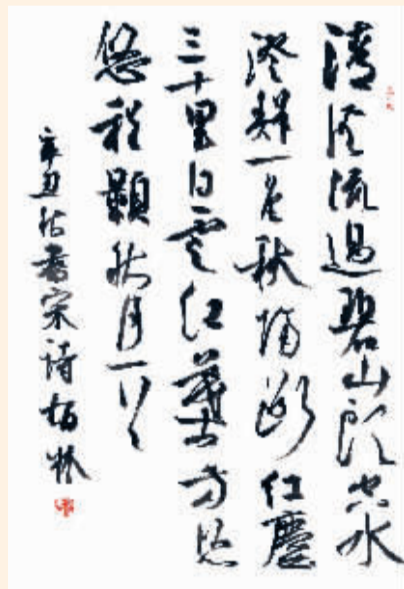 清溪流過碧山頭空水
澄鮮一色秋隔斷紅塵
三十里白雲紅葉兩悠
悠程顥秋月一首
辛丑秋書宋詩